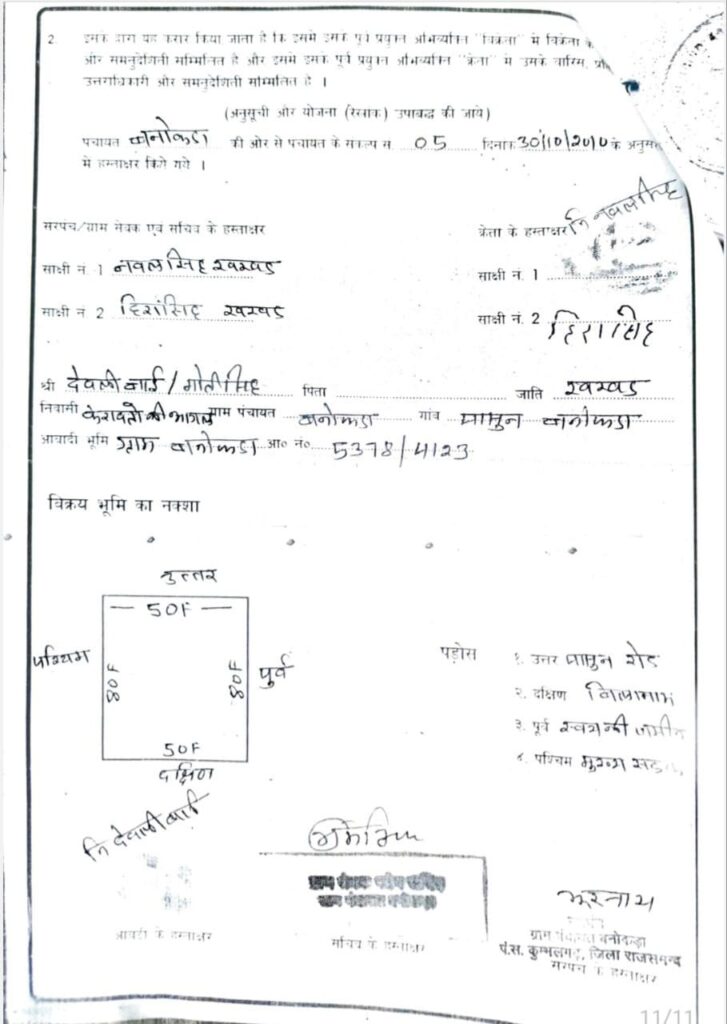 2. इसके द्वारा यह करार किया जाता है कि इसमें इसके पूर्व प्रयुक्त अभिव्यक्ति "विक्रेता" में विक्रेता के
और समनुदेशिती सम्मिलित है और इसमें इसके पूर्व प्रयुक्त अभिव्यक्ति "क्रेता" में उसके वारिस,
उत्तराधिकारी और समनुदेशिती सम्मिलित है ।
(अनुसूची और योजना (रेखांक) उपाबद्ध की जाये)
पंचायत बनोकडा की ओर से पंचायत के संकल्प सं. 05 दिनांक 30/10/2010 के
में हस्ताक्षर किये गये ।
सरपंच/ग्राम सेवक एवं सचिव के हस्ताक्षर
क्रेता के हस्ताक्षर नि नवलसिंह
साक्षी नं. 1 नवलसिंह खरवड
साक्षी नं. 1
साक्षी नं. 2 हिरासिंह खरवड
साक्षी नं. 2 हिरासिंह
श्री देवलीबाई / मोतीसिंह पिता जाति खरवड
निवासी ग्राम पंचायत बनोकडा गांव बनोकडा
आबादी भूमि ग्राम बनोकडा आ० नं० 5378/4123
विक्रय भूमि का नक्शा
उत्तर
50F
पश्चिम
80F
80F
पुर्व
50F
दक्षिण
पड़ोस
१. उत्तर रोड
२. दक्षिण
३. पूर्व जमीन
४. पश्चिम मुख्य सडक
नि देवलीबाई
आवंटी के हस्ताक्षर
सचिव के हस्ताक्षर
ग्राम पंचायत
पं.स. कुम्भलगढ़, जिला राजसमन्द
सरपंच के हस्ताक्षर
11/11